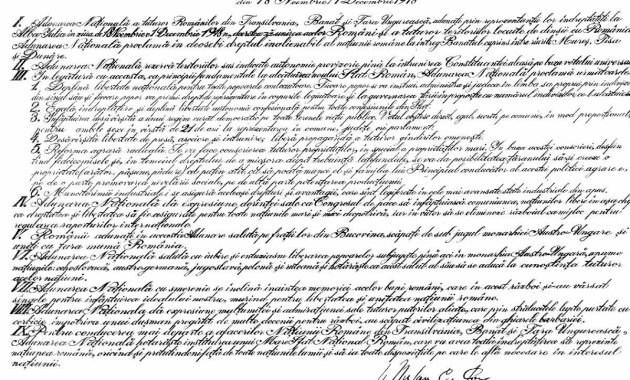 din 18 Noembrie / 1 Decembrie 1918
I. Adunarea Națională a tuturor Românilor din Transilvania, Banat și Țara Ungurească, adunați prin reprezentanții lor îndreptățiți la
Alba Iulia în ziua de 18 Noembrie / 1 Decembrie 1918, decretează unirea acelor Români și a tuturor teritoriilor locuite de dânșii cu România.
Adunarea Națională proclamă în deosebi dreptul inalienabil al națiunii române la întreg Banatul cuprins între râurile Mureș, Tisa
și Dunăre.
II. Adunarea Națională rezervă teritoriilor sus indicate autonomie provizorie până la întrunirea Constituantei aleasă pe baza votului universal.
III. În legătură cu aceasta, ca principii fundamentale la alcătuirea noului Stat Român, Adunarea Națională proclamă următoarele:
1. Deplină libertate națională pentru toate popoarele conlocuitoare. Fiecare popor se va instrui, administra și judeca în limba sa proprie prin indivizi
din sânul său și fiecare popor va primi drept de reprezentare în corpurile legiuitoare și la guvernarea țării în proporție cu numărul indivizilor ce-l alcătuiesc.
2. Egală îndreptățire și deplină libertate autonomă confesională pentru toate confesiunile din Stat.
3. Înfăptuirea desăvârșită a unui regim curat democratic pe toate terenele vieții publice. Votul obștesc, direct, egal, secret, pe comune, în mod proporțional,
pentru ambele sexe, în vârstă de 21 de ani la reprezentarea în comune, județe, ori parlament.
4. Desăvârșită libertate de presă, asociere și întrunire; liberă propagandă a tuturor gândurilor omenești.
5. Reforma agrară radicală. Se va face conscrierea tuturor proprietăților, în special a proprietăților mari. În baza acestei conscrieri, desființ-
ând fideicomisele și, în temeiul dreptului de a micșora după trebuință latifundiile, se va da posibilitatea țăranului să-și creeze o
proprietate (arător, pășune, pădure) cel puțin atât cât să poată munci el și familia lui. Principiul conducător al acestei politici agrare e,
pe de o parte promovarea nivelării sociale, pe de altă parte potențarea producțiunii.
6. Muncitorimei industriale i se asigură aceleași drepturi și avantagii, care sunt legiferate în cele mai avansate state industriale din apus.
IV. Adunarea Națională dă expresiune dorinței sale ca Congresul de pace să înfăptuiască comuniunea națiunilor libere în așa chip,
ca dreptatea și libertatea să fie asigurate pentru toate națiunile mari și mici deopotrivă, iar în viitor să se elimineze războiul ca mijloc pentru
regularea raporturilor internaționale.
V. Românii adunați în această Adunare salută pe frații lor din Bucovina, scăpați de sub jugul monarhiei Austro-Ungare și
uniți cu țara mumă România.
VI. Adunarea Națională salută cu iubire și entuziasm liberarea popoarelor subjugate până aci în monarhia Austro-Ungară, anume
națiunile: cehoslovacă, austro-germană, iugoslavă, polonă și ruteană și hotărăște ca acest salut al său să se aducă la cunoștința tuturor
acelor națiuni.
VII. Adunarea Națională cu smerenie se închină înaintea memoriei acelor bravi români, care în acest război și-au vărsat
sângele pentru înfăptuirea idealului nostru, murind pentru libertatea și unitatea națiunii române.
VIII. Adunarea Națională dă expresiune mulțumirei și admirațiunei sale tuturor puterilor aliate, care prin strălucitele lupte purtate cu
cerbicie împotriva unui dușman pregătit de multe decenii pentru război, au scăpat civilizațiunea din ghiarele barbariei.
IX. Pentru conducerea mai departe a afacerilor Națiunii Române din Transilvania, Banat și Țara Ungurească,
Adunarea Națională hotărăște instituirea unui Mare Sfat Național Român, care va avea toată îndreptățirea să reprezinte
națiunea română, oricând și pretutindeni față de toate națiunile lumii și să ia toate dispozițiile pe care le află necesare în interesul
națiunii.